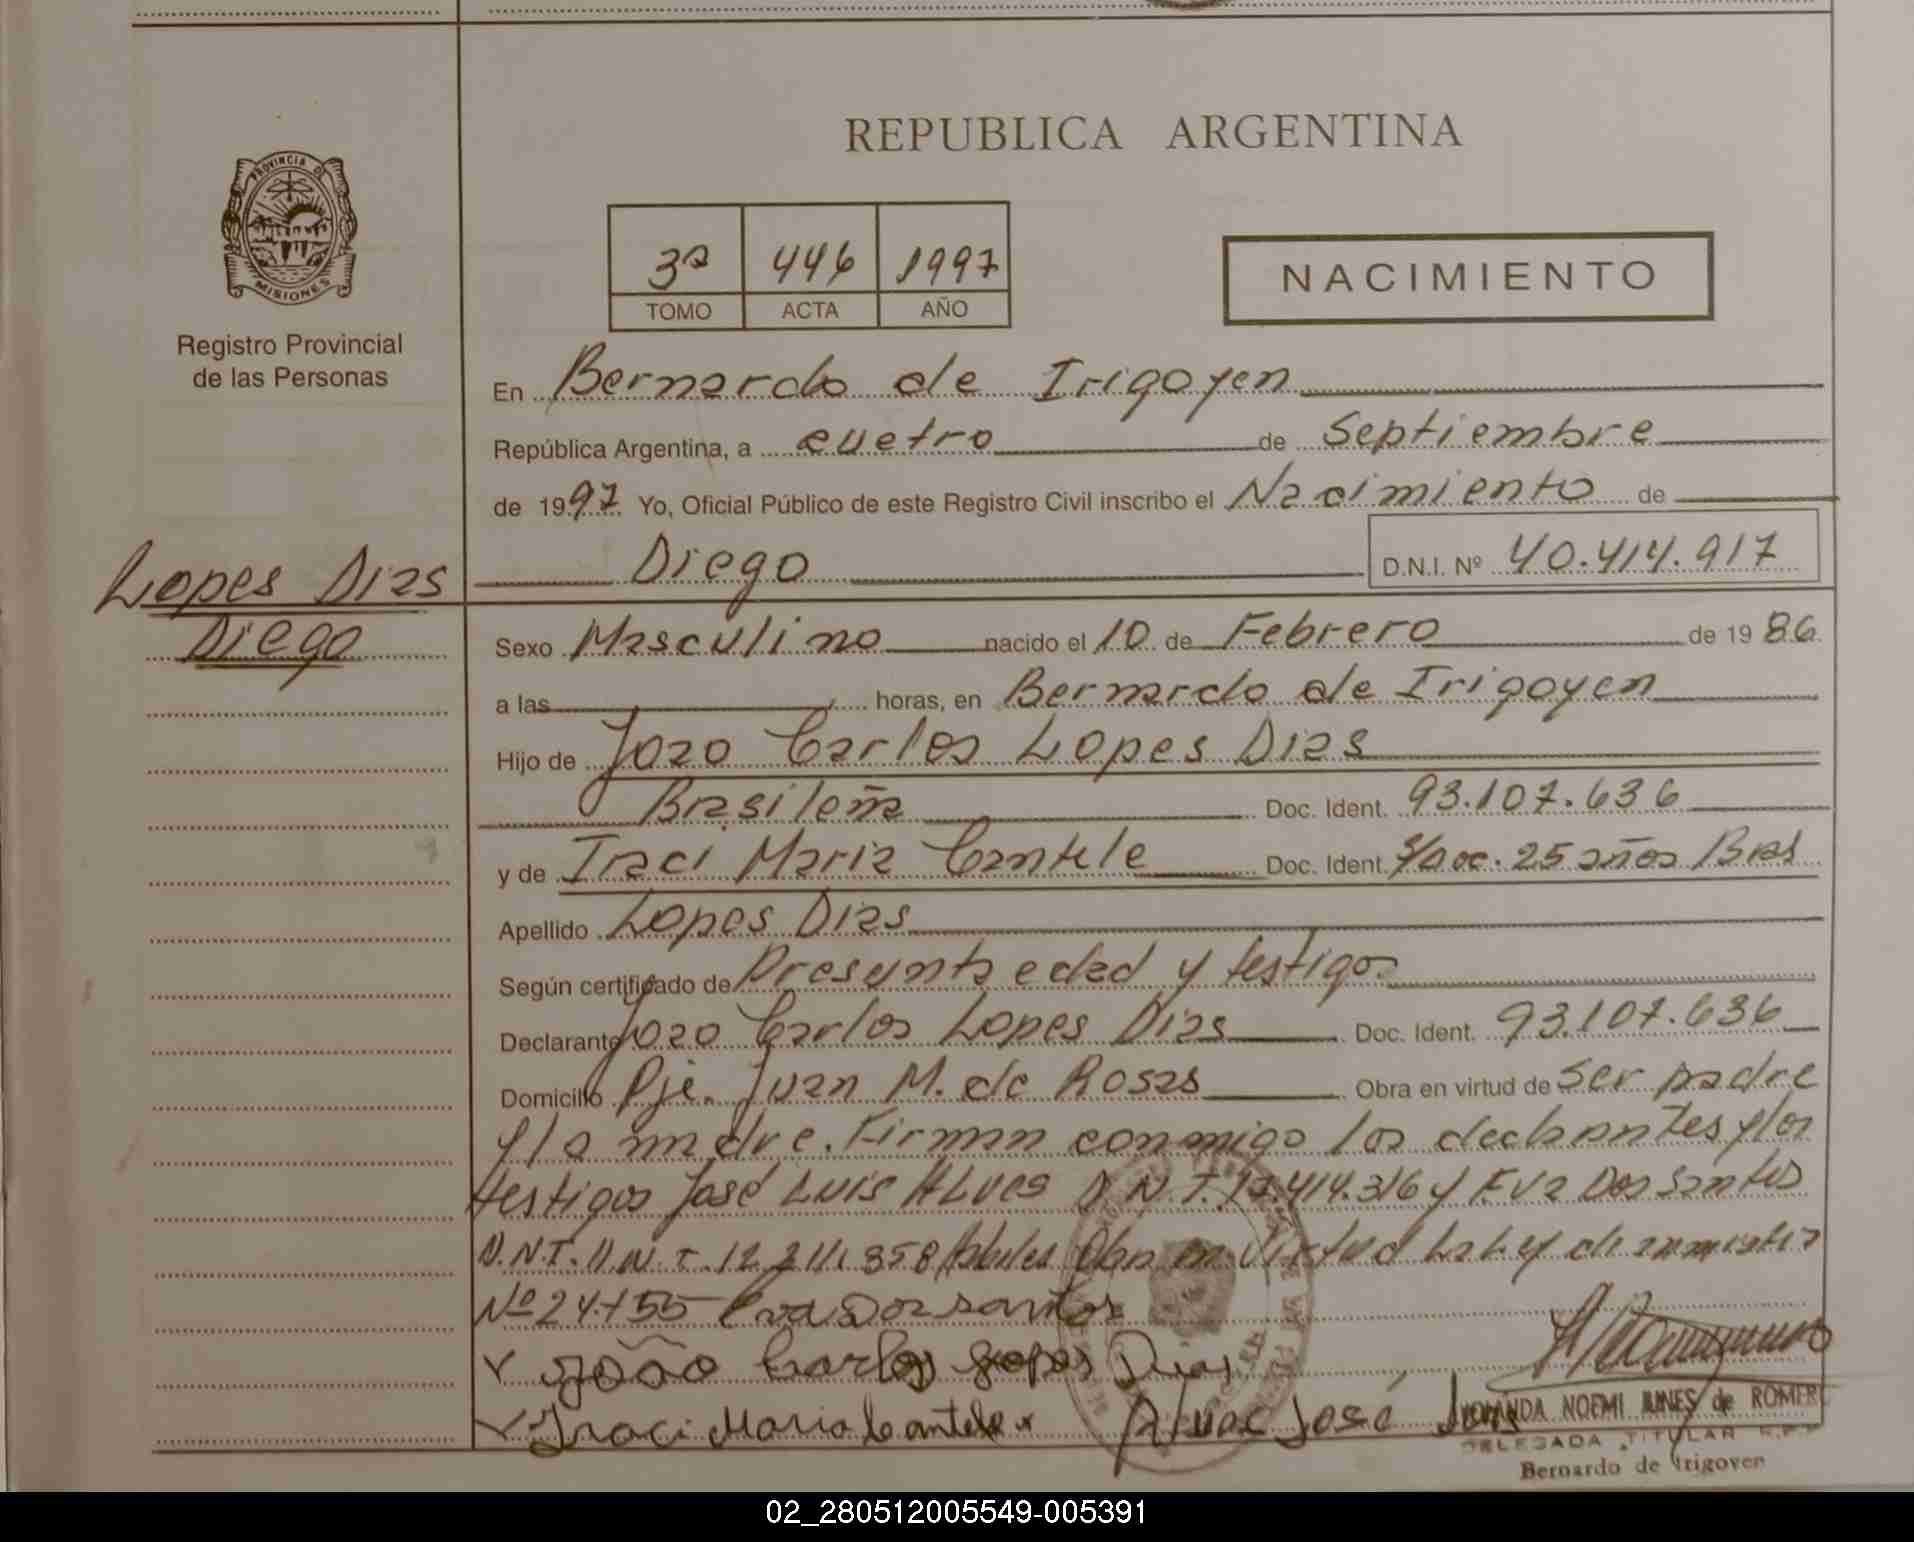 REPUBLICA ARGENTINA
PROVINCIA DE
MISIONES
Registro Provincial
de las Personas
3ª 446 1997
TOMO ACTA AÑO
NACIMIENTO
En Bernardo de Irigoyen
República Argentina, a cuatro de Septiembre
de 1997 Yo, Oficial Público de este Registro Civil inscribo el Nacimiento de
Diego D.N.I. Nº 40.414.917
Lopes Dias
Diego
Sexo Masculino nacido el 10 de Febrero de 1986
a las horas, en Bernardo de Irigoyen
Hijo de Joao Carlos Lopes Dias
Brasileña Doc. Ident. 93.107.636
y de Iraci Maria Cantele Doc. Ident. S/Doc. 25 años Bras
Apellido Lopes Dias
Según certificado de Presunta edad y testigos
Declarante Joao Carlos Lopes Dias Doc. Ident. 93.107.636
Domicilio Pje. Juan M. de Rosas Obra en virtud de Ser padre
y la madre. Firman conmigo los declarantes y los
testigos José Luis Alves D.N.I. 17.414.316 y Eva Dos Santos
D.N.I. Obra en Virtud La Ley de amnistia
Nº 24755 Eva Dos santos
João Carlos Lopes Dias
Iraci Maria Cantele Alves José Luis
NOEMI de ROMER
DELEGADA TITULAR
Bernardo de Irigoyen
02_280512005549-005391